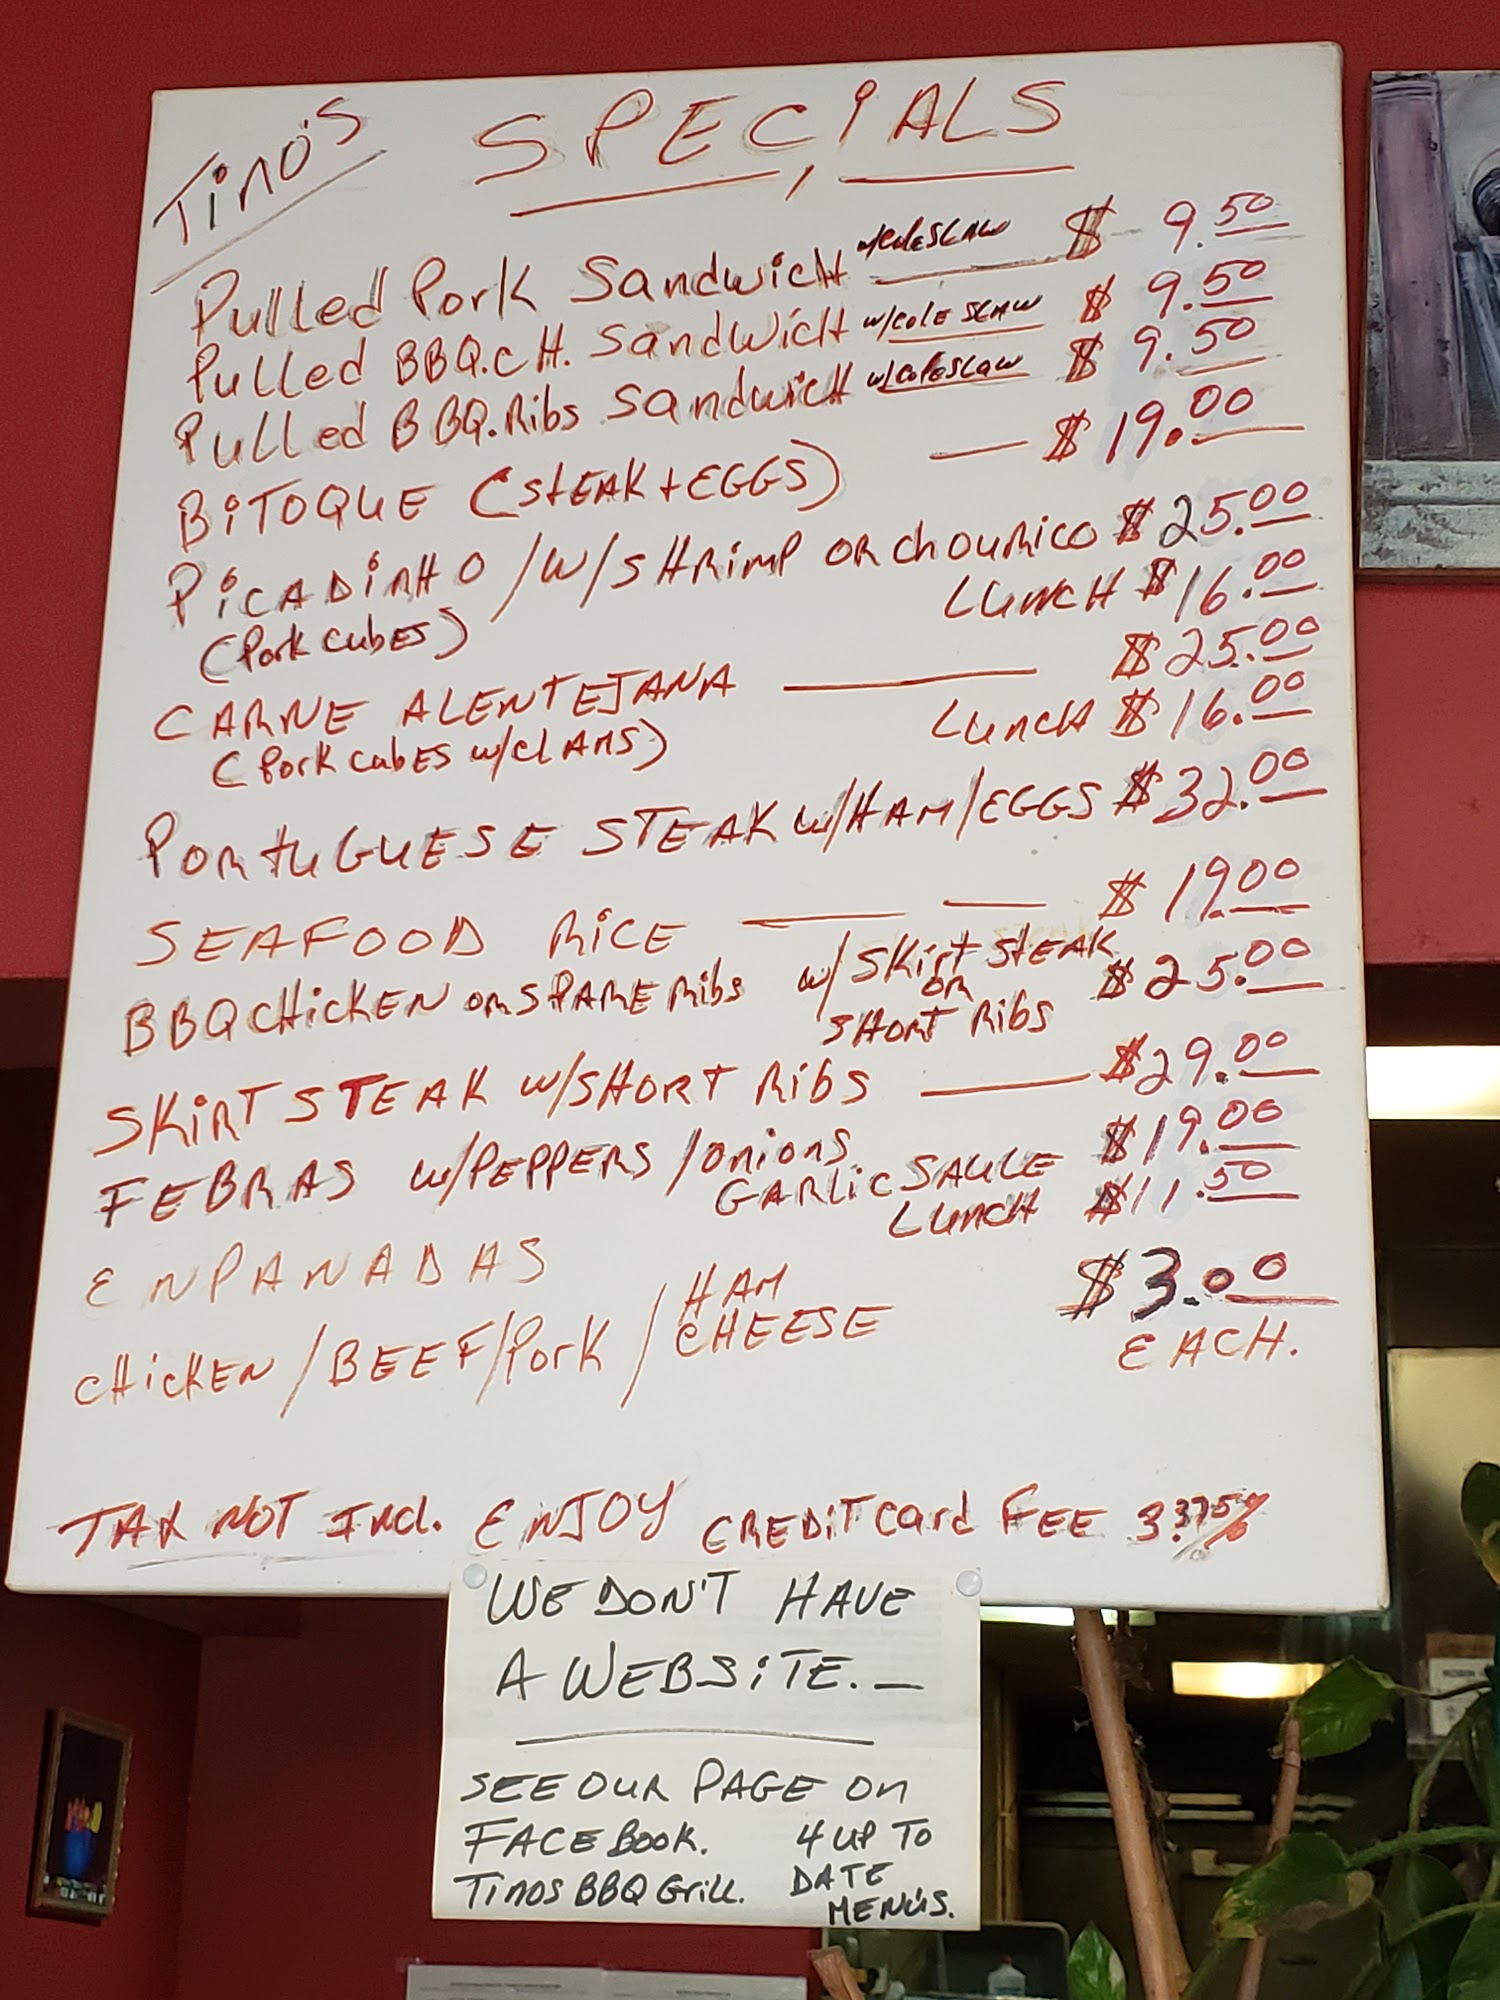 Tino's SPECIALS
Pulled Pork Sandwich w/coleSLAW $ 9.50
Pulled BBQ.CH. Sandwich w/coLE SLAW $ 9.50
Pulled BBQ.Ribs Sandwich w/coleSLaw $ 9.50
BiTOQUE (StEAK+EGGS) — $19.00
PiCADiNHO/W/SHRimP OR CHOURICO $25.00
(Pork cubES) LUNCH $16.00
CARNE ALENTEJANA — $25.00
(Pork cubES w/clAMS) LuncH $16.00
PORtuGUESE STEAK w/HAM/EGGS $32.00
SEAFOOD RiCE — — $19.00
BBQ CHicKEN OR SPARE Ribs w/SKirt StEAK OR SHORT Ribs $25.00
SKiRT STEAK w/SHORT Ribs — $29.00
FEBRAS w/PEPPERS/Onions GARLic SAUCE $19.00
LuncH $11.50
ENPANADAS
CHicKEN/BEEF/Pork/HAM CHEESE $3.00 EACH.
TAX NOT Incl. ENJOY CREDiT Card FEE 3.375%
WE DON'T HAVE
A WEBSiTE. —
SEE OUR PAGE On
FACEBOOK. 4 UP TO
TiNOS BBQ Grill. DATE
MENUS.